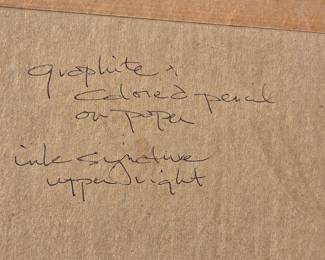 graphite &
colored pencil
on paper
ink signature
upper right